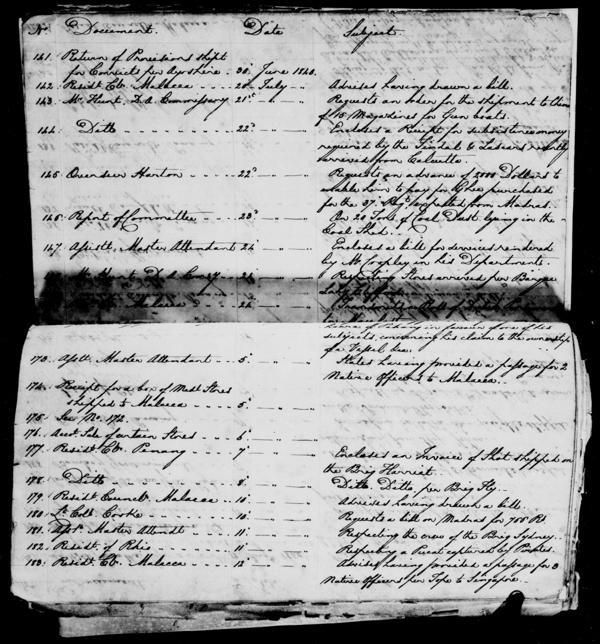 No. Document. Date Subject.
141. Return of Provisions shipt
for Convicts per Ayrshire. 30. June 1840.
142. Residt. Cr. Malacca 20. July " Advises having drawn a bill.
143. Mr. Hunt, D.A. Commissary 21st. " " Requests an order for the shipment to China
of 15 Magazines for Gun boats.
144. Ditto 22d. " " Encloses a Receipt for subsistence money
required by the Tindal & Lascars recently
arrived from Calcutta.
145. Overseer Hanton 22d. " " Requests an advance of 2000 Dollars to
enable him to pay for purchased
for the 37. Regt. expected from Madras.
146. Report of Committee 23d. " " On 20 Tons of Coal Dust lying in the
Coal Shed.
147. Assistt. Master Attendant 24. " " Encloses a bill for services rendered
by Mr. in his Department.
Mr. Hunt D.A. Comy. 24. " " Respecting Stores arrived per
Malacca 24. " "
of Pahang in favour of one of his
subjects, concerning his claim to the ownership
of a Vessel &ca.
173. Asstt. Master Attendant 5. " " States having provided a passage for 2
Native Officers to Malacca.
174. Receipt for a box of Medl. Stores
shipped to Malacca 5. " "
175. See No. 172.
176. Acct. Sale of certain Stores 6. " "
177. Residt. Cr. Penang 7. " " Encloses an Invoice of Shot shipped on
the Brig Harriet.
178. Ditto 8. " " Ditto Ditto per Brig Fly.
179. Residt. Councr. Malacca 10. " " Advises having drawn a bill.
180. Lt. Coll. Cooke 10. " " Requests a bill on Madras for 755 Rs.
181. Asst. Master Attendt. 11. " " Respecting the crew of the Brig Sydney.
182. Residt. of Rhio 11. " " Respecting a captured by Pirates.
183. Residt. Cr. Malacca 12. " " Advises having provided a passage for 3
Native Officers per Tope to Singapore.